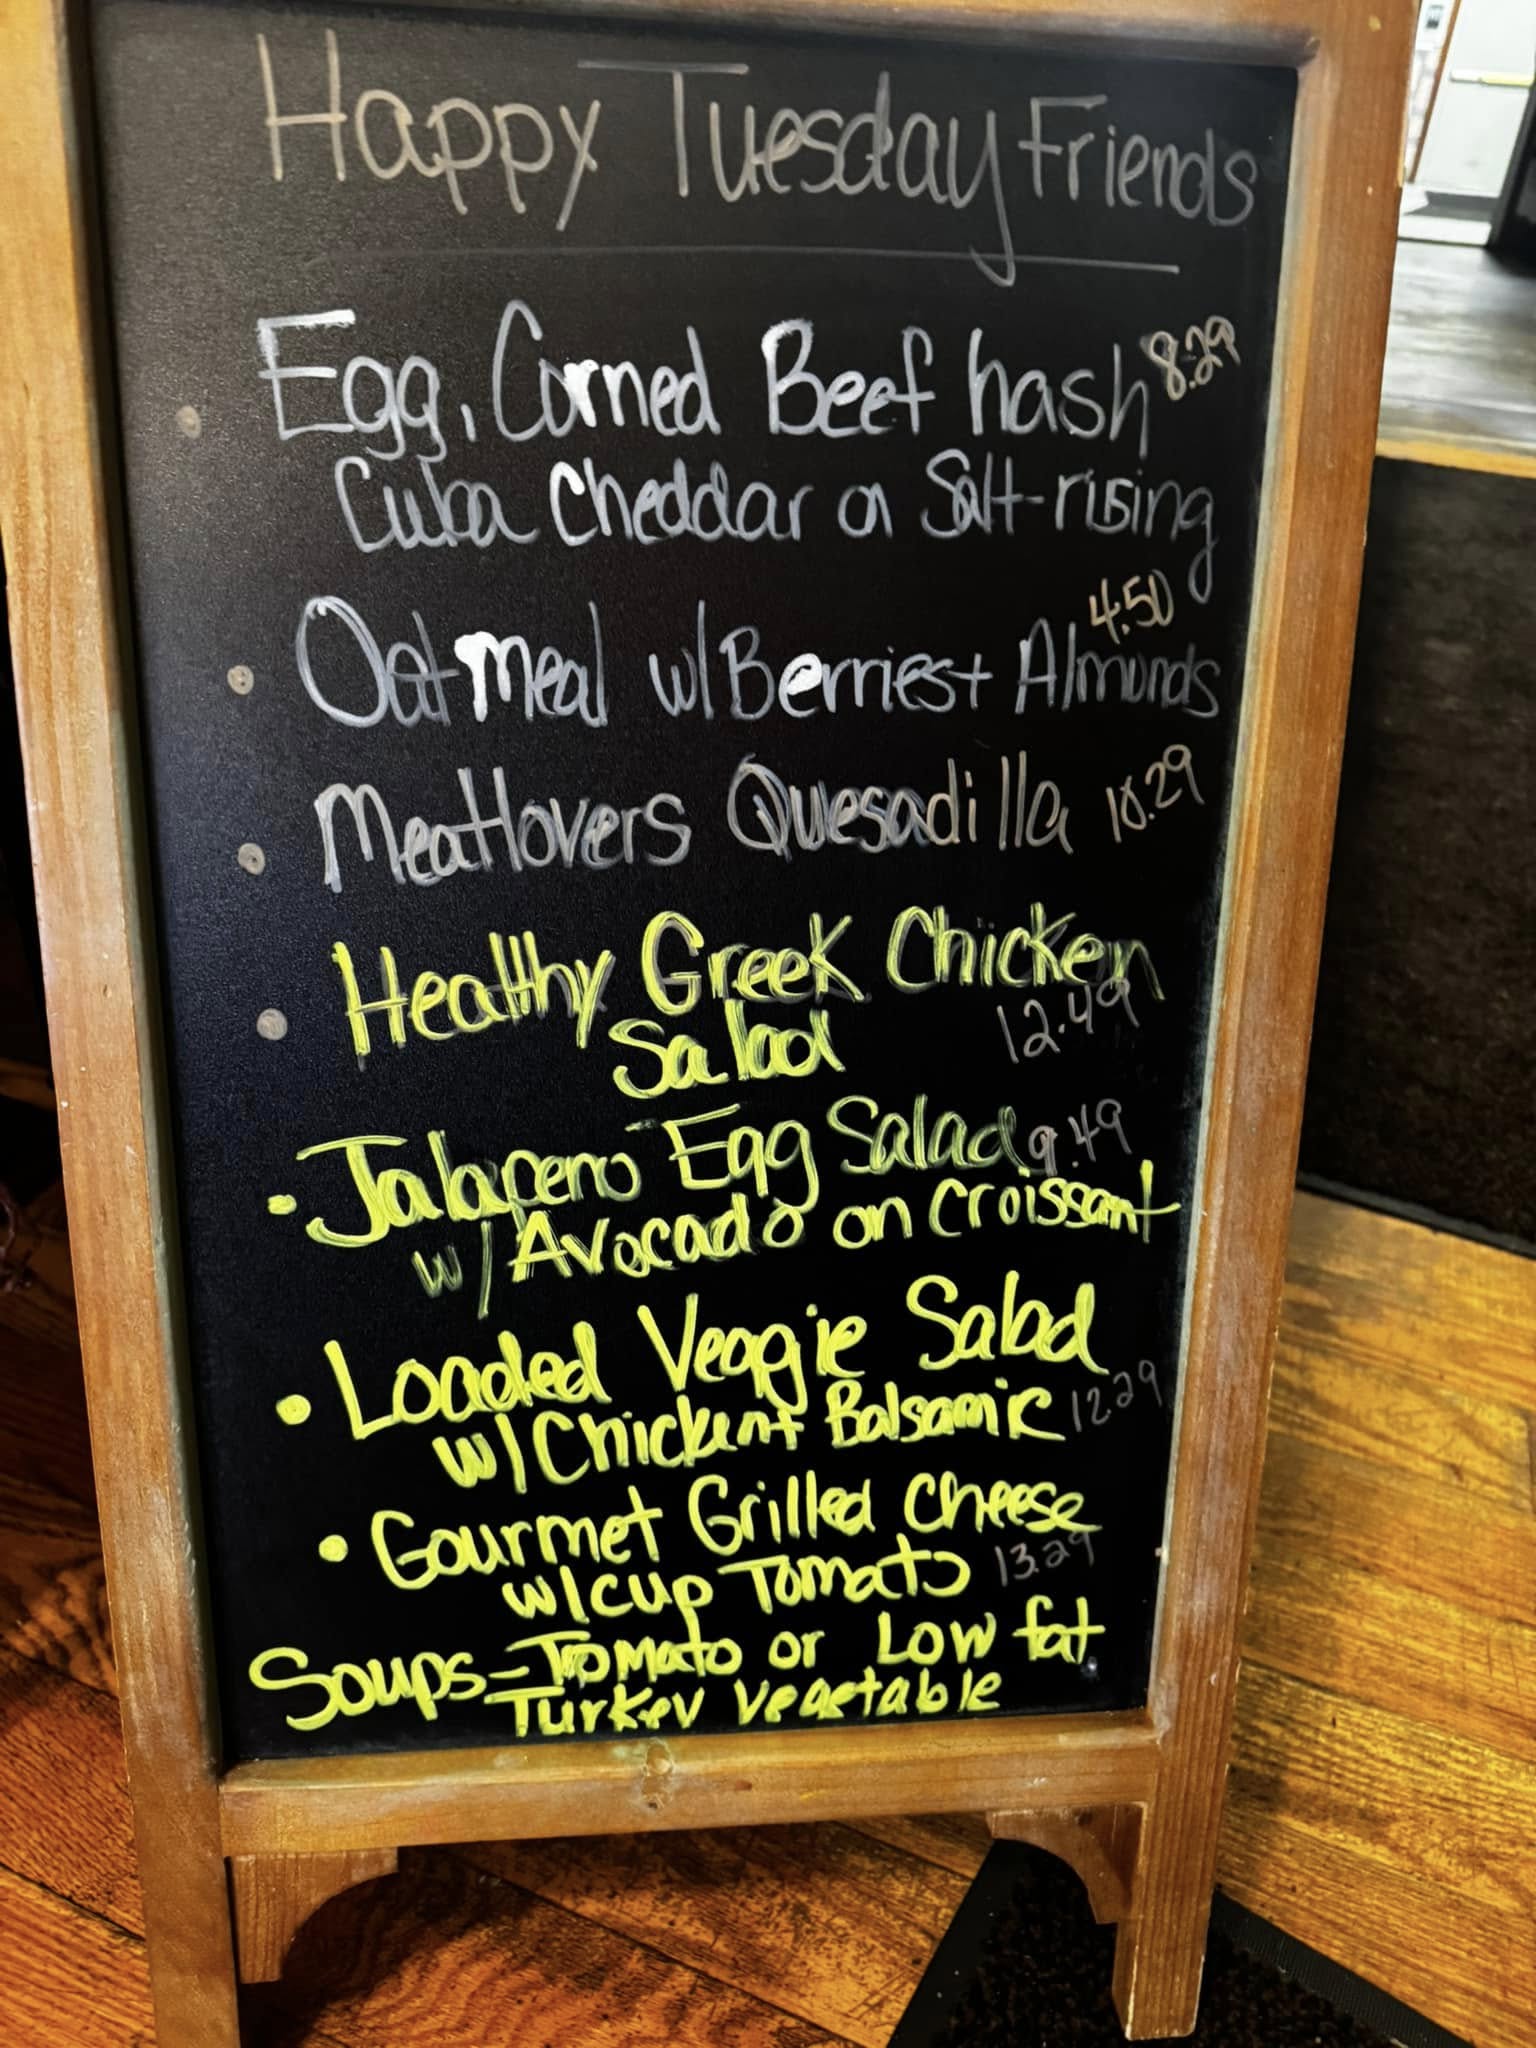 Happy Tuesday Friends
Egg, Corned Beef hash 8.29
Cuba Cheddar on Salt-rising
• Oatmeal w/ Berries + Almonds 4.50
• Meatlovers Quesadilla 10.29
• Healthy Greek Chicken
Salad 12.49
• Jalapeno Egg Salad 9.49
w/ Avocado on croissant
• Loaded Veggie Salad
w/ Chicken + Balsamic 12.29
• Gourmet Grilled Cheese
w/ cup Tomato 13.29
Soups - Tomato or Low fat
Turkey vegetable